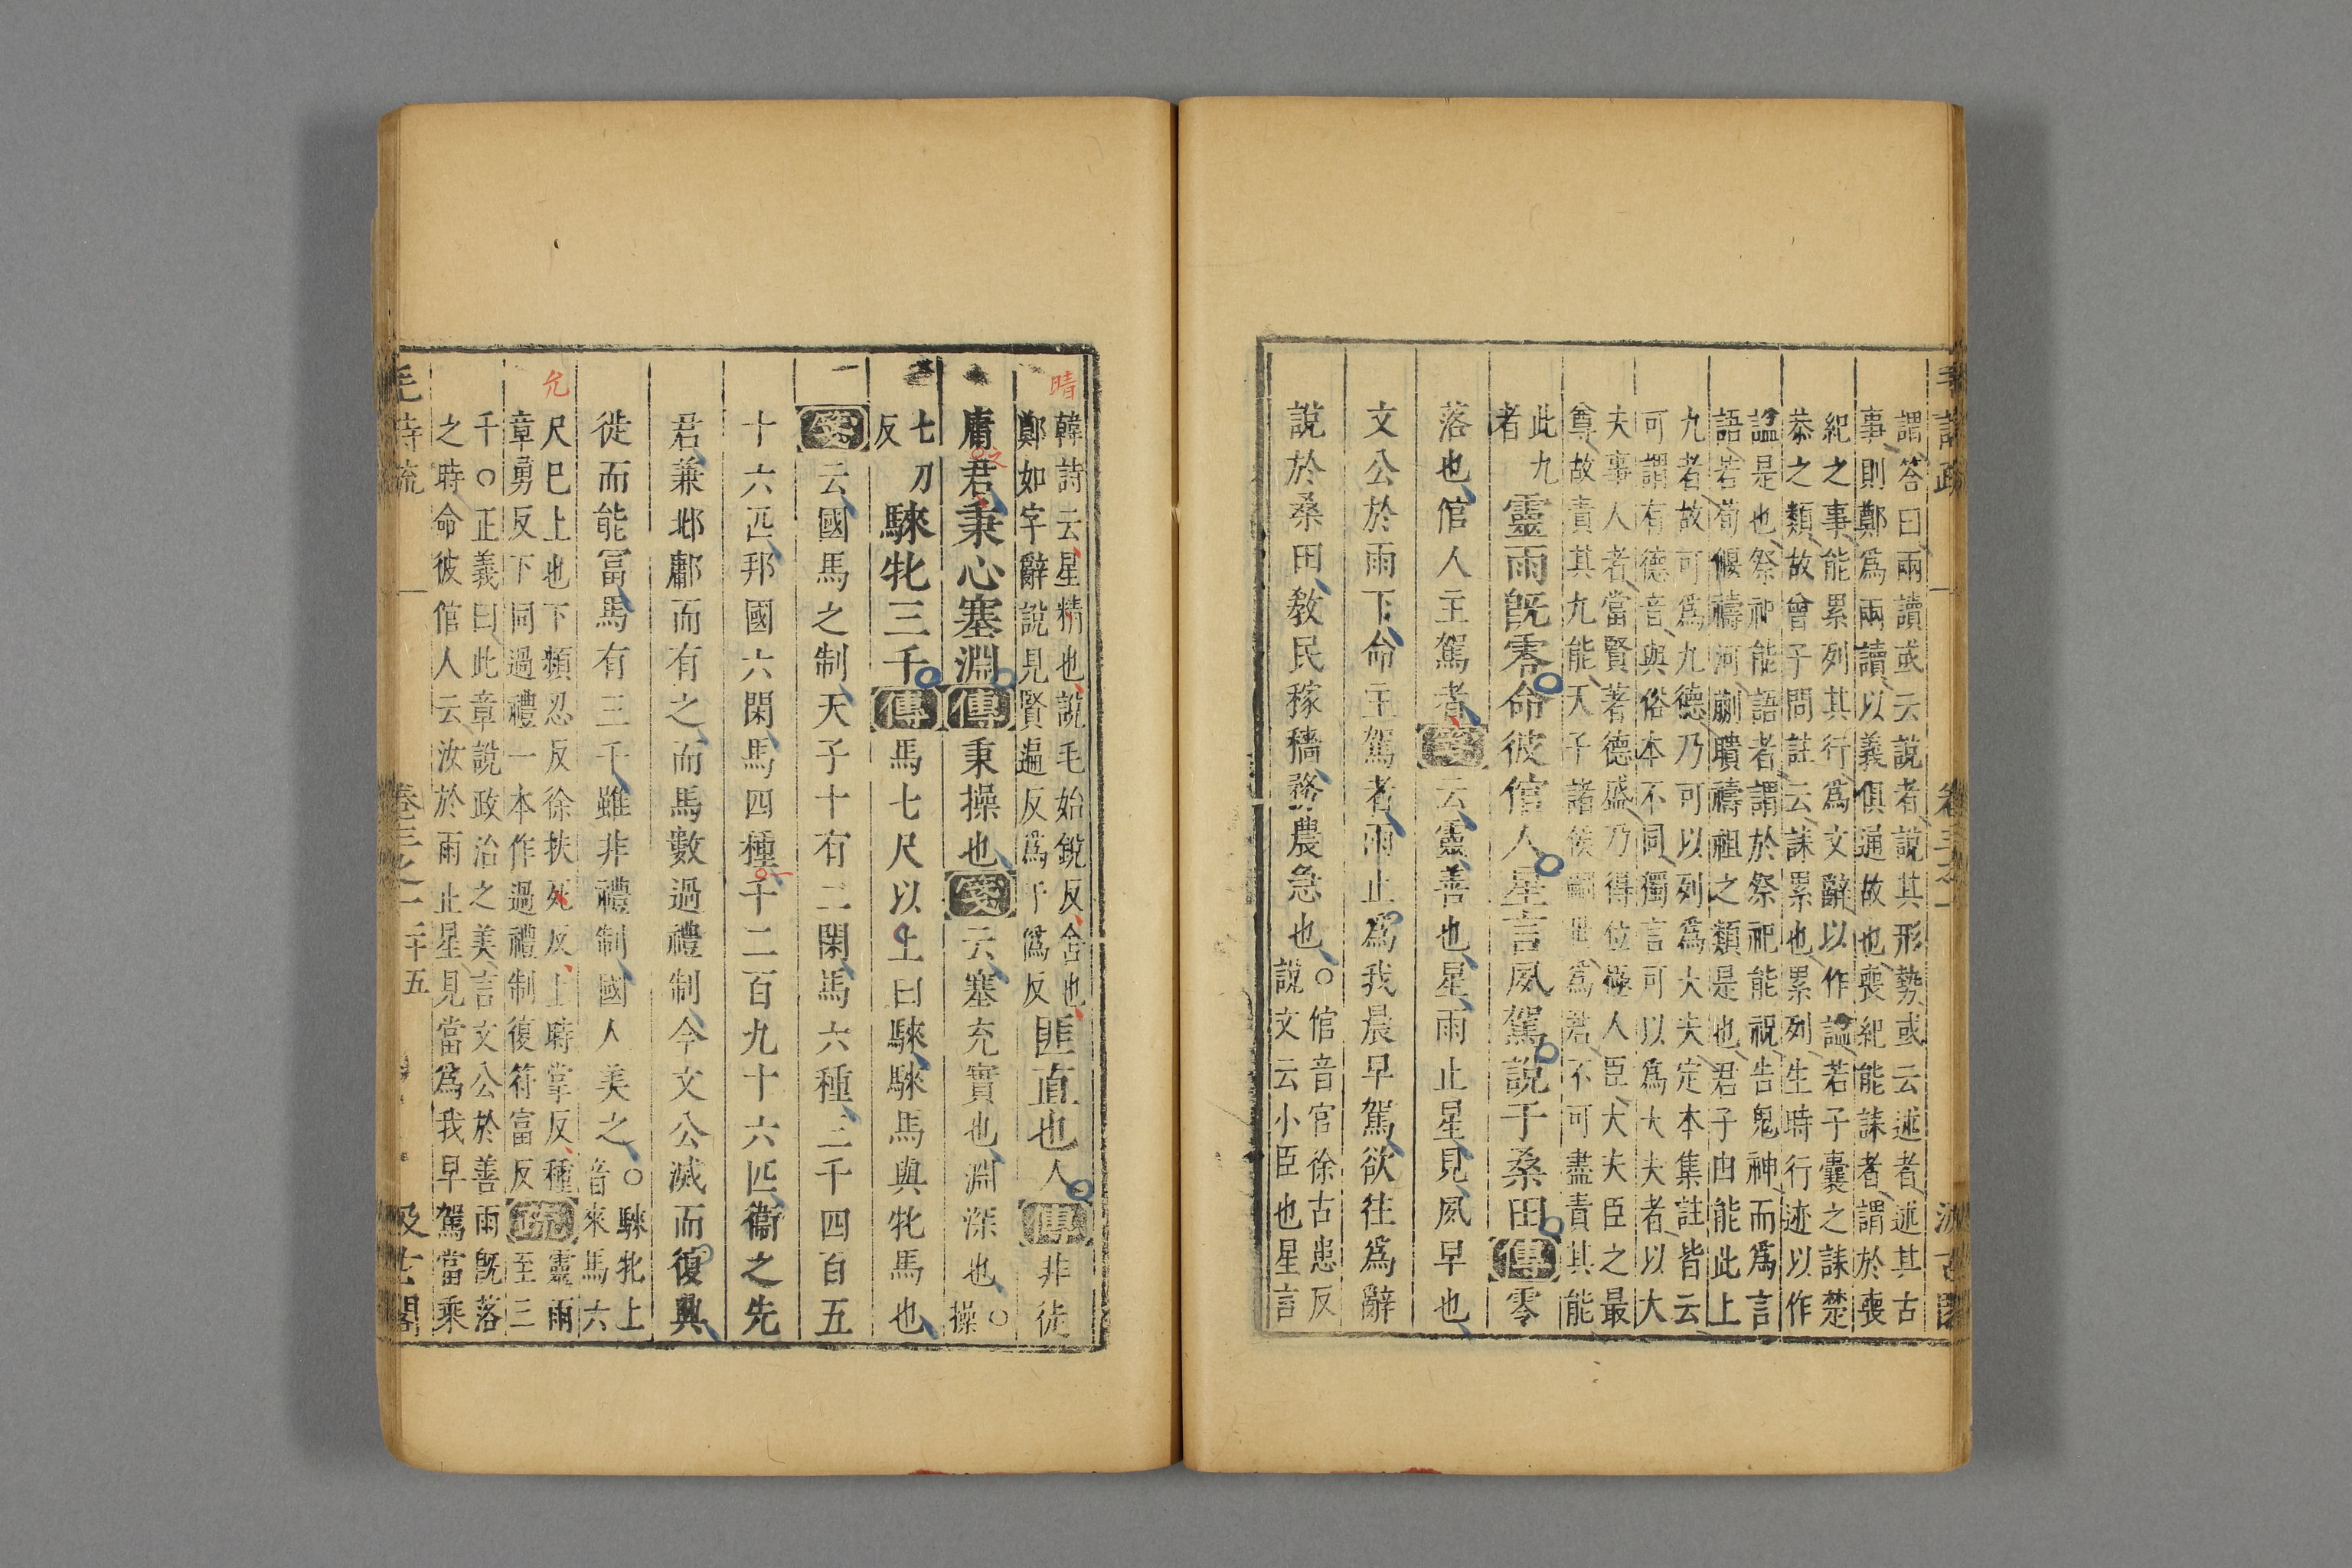 謂荅曰兩讀或云說者說其形勢或云述者述其古
事則鄭爲兩讀以義俱通故也喪紀能誄者謂於喪
紀之事能累列其行爲文辭以作謚若子囊之誄楚
恭之類故曾子問註云誄累也累列生時行迹以作
謚是也祭祀能語者謂於祭祀能祝告鬼神而爲言
語若荀偃禱河蒯聵禱祖之類是也君子由能此上
九者故可爲九德乃可以列爲大夫定本集註皆云
可謂有德音與俗本不同獨言可以爲大夫者以大
夫事人者當賢著德盛乃得位極人臣大夫臣之最
尊故責其九能天子諸侯嗣世爲君不可盡責其能
此九
者
靈雨旣零命彼倌人星言夙駕說于桑田傳零
落也倌人主駕者箋云靈善也星雨止星見夙早也
文公於雨下命主駕者雨止爲我晨早駕欲往爲辭
說於桑田敎民稼穡務農急也
○倌音官徐古患反
說文云小臣也星言
韓詩云星精也說毛始銳反舍也
鄭如字辭說見賢遍反爲于僞反
匪直也人傳非徒
庸君秉心塞淵傳秉操也箋云塞充實也淵深也
○
操
七刀
反
騋牝三千傳馬七尺以上曰騋騋馬與牝馬也
箋云國馬之制天子十有二閑馬六種三千四百五
十六匹邦國六閑馬四種千二百九十六匹衞之先
君兼邶鄘而有之而馬數過禮制今文公滅而復興
徙而能富馬有三千雖非禮制國人美之
○騋牝上
音來馬六
尺巳上也下頻忍反徐扶死反上時掌反種
章勇反下同過禮一本作過禮制復符富反
疏
靈雨
至三
千○正義曰此章說政治之美言文公於善雨旣落
之時命彼倌人云汝於雨止星見當爲我早駕當乘
毛詩疏 卷三之一 二十五 汲古閣
晴
允